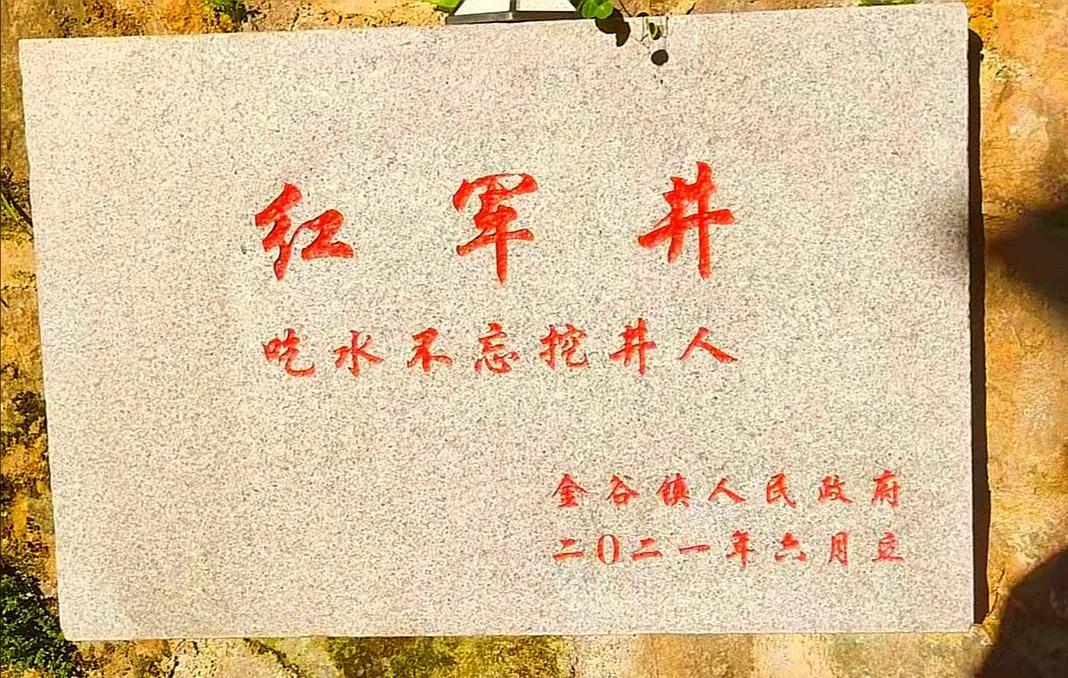 红军井
吃水不忘挖井人
金谷镇人民政府
二0二一年六月立